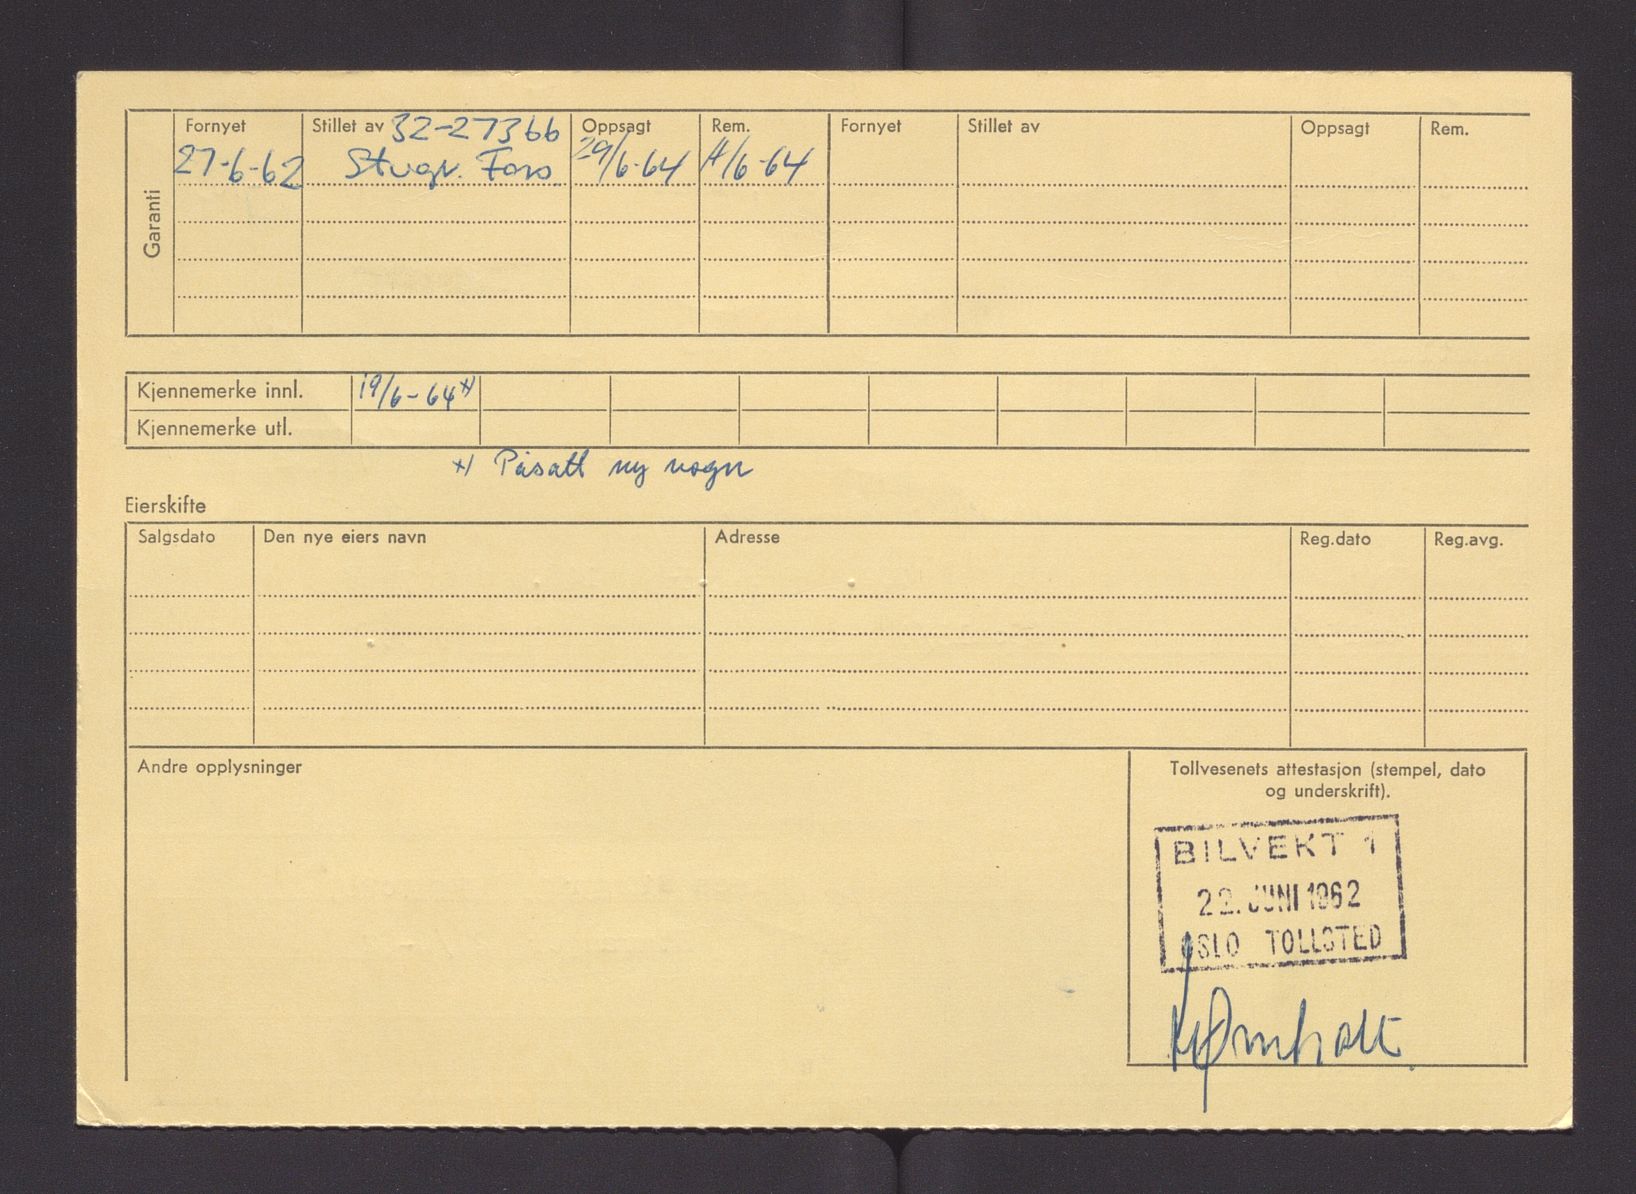 Garanti
Fornyet Stillet av 32-27366 Oppsagt Rem. Fornyet Stillet av Oppsagt Rem.
27-6-62 29/6-64 /6-64
Kjennemerke innl. 19/6-64 x)
Kjennemerke utl.
x) Påsatt ny vogn
Eierskifte
Salgsdato Den nye eiers navn Adresse Reg.dato Reg.avg.
Andre opplysninger
Tollvesenets attestasjon (stempel, dato
og underskrift).
BILVEKT 1
22. JUNI 1962
OSLO TOLLSTED